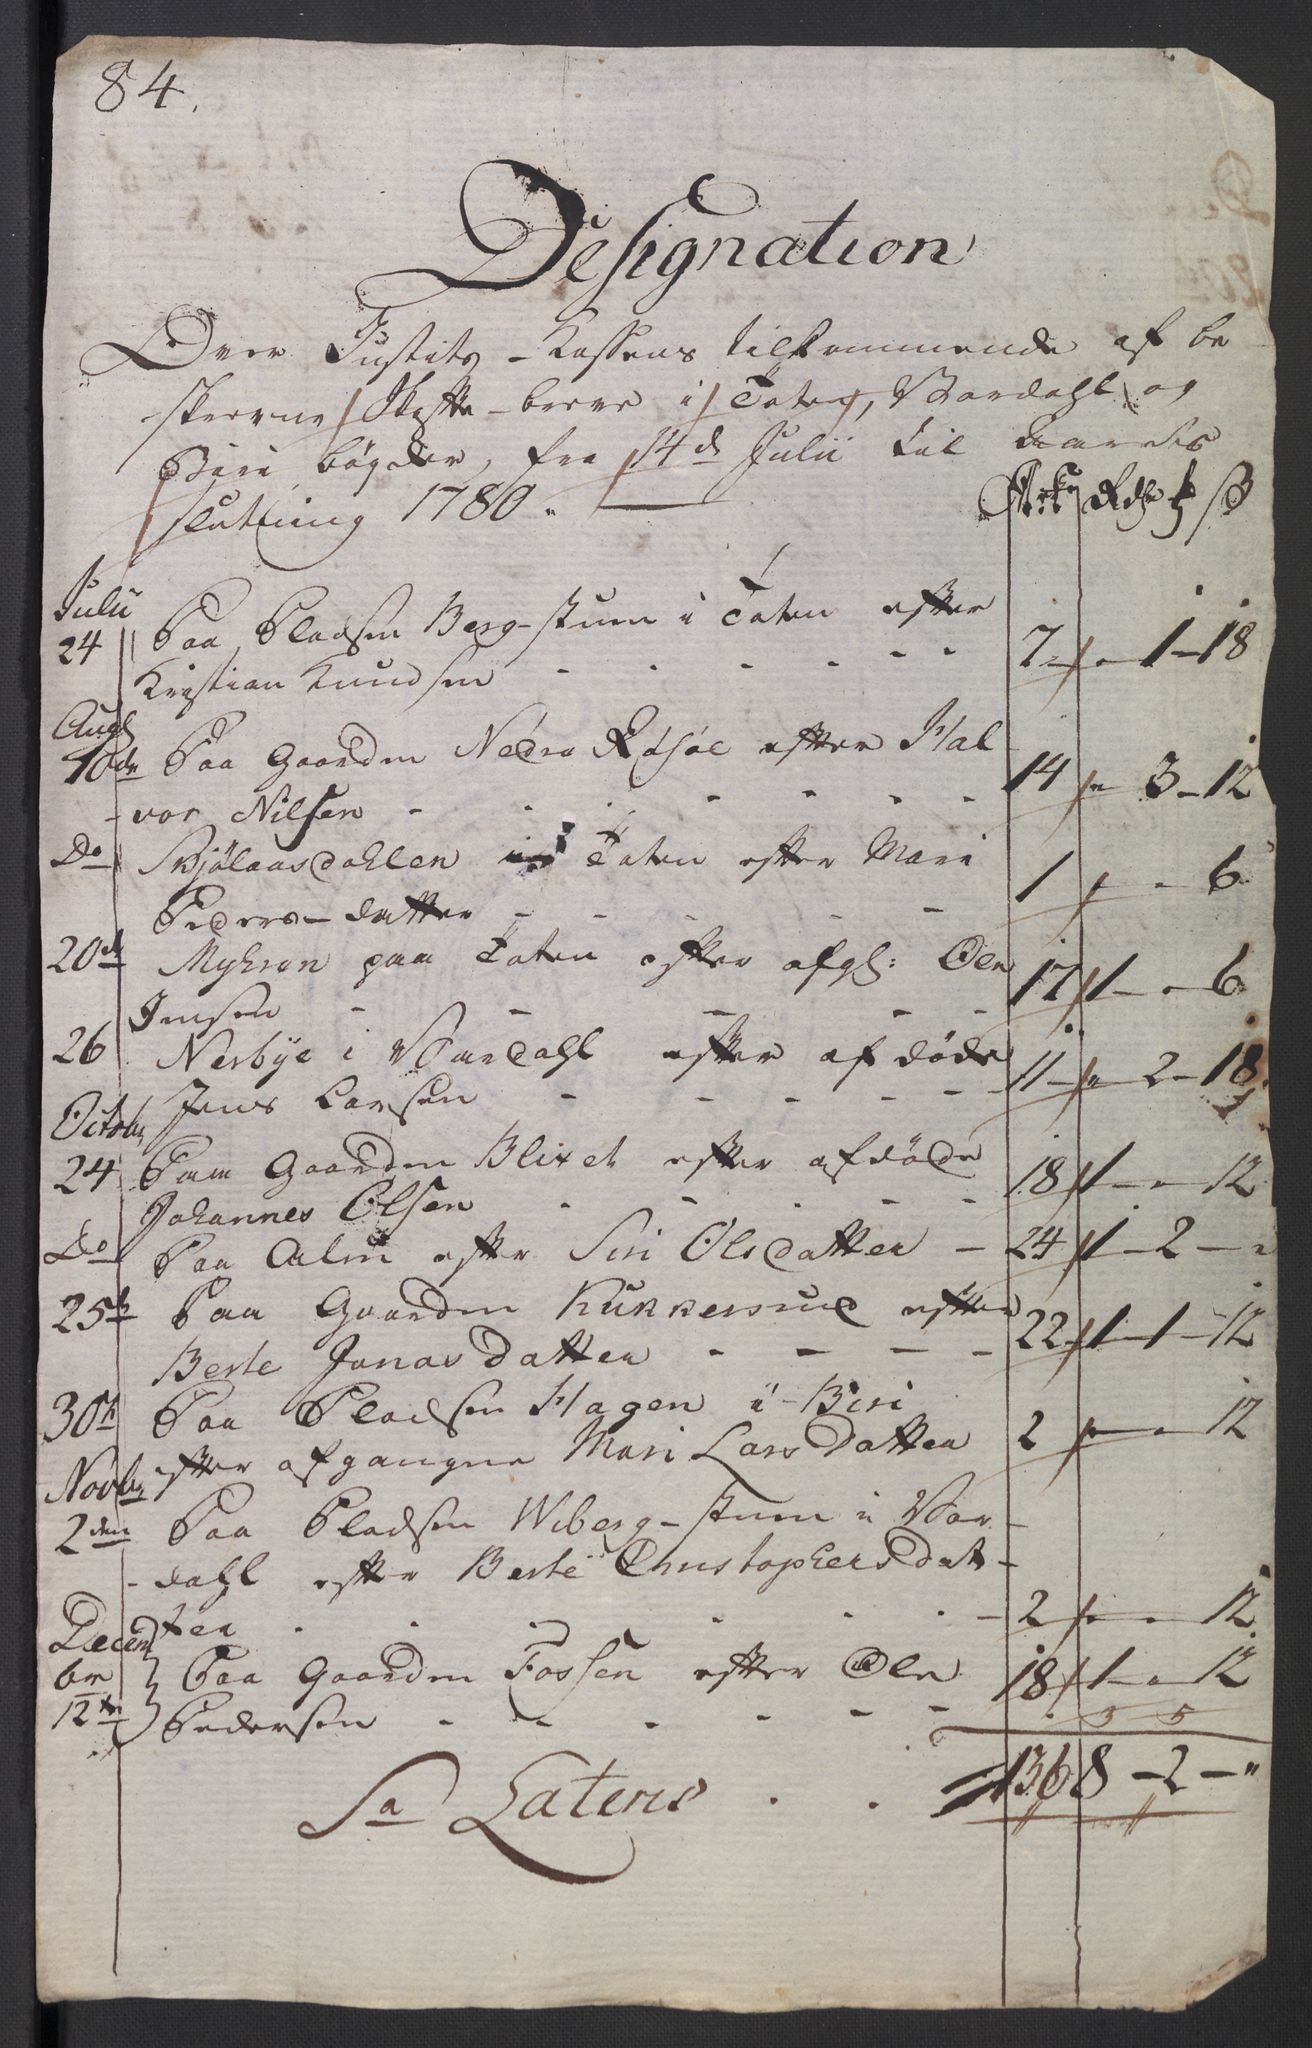 84.
Designation
Over Justits-Kassens tilkommende af be
skrevne Skifte-breve i Toten, Vardahl og
Biri bøgder, fra 14de Julii til Aarets
slutning 1780.
Ark Rdlr # ß
Julii
24 Paa Pladsen Berg-stuen i Toten efter
Kristian Knudsen - - - - - - 7 " 1 - 18
Aug
10de Paa Gaarden Nedre Kiøsøe efter Hal
vor Nilsen - - - - - - 14 " 3 - 12
Do Skjølaasdahlen i Toten efter Mari
Peders-datter - - - - - 1 " - 6
20de Myhren paa Toten efter afg: Ole
Jensen - - - - - 17 1 - " 6
26 Nerbye i Vardahl efter afdøde
Jens Larsen - - - - - - 11 - " 2 - 18
Octobr
24 Paa Gaarden Blixet efter afdøde
Johannes Olsen - - - - - 18 1 - " 12
Do Paa Alm efter Siri Olsdatter - 24 1 - 2 - "
25de Paa Gaarden Kukkersrud efter
Berte Jonasdatter - - - - 22 1 - 1 - 12
30te Paa Pladsen Hagen i Biri
efter afgangne Mari Larsdatter 2 " - " 12
Novbr
2den Paa Pladsen Wiberg-stuen i Var-
-dahl efter Berte Christophersdat-
ter - - - - - - 2 " - " 12
Decem
br
12te Paa Gaarden Fossen efter Ole
Pedersen - - - - - - 18 1 - " 12
3 5
Sa Lateris . . 136 8 - 2 - "